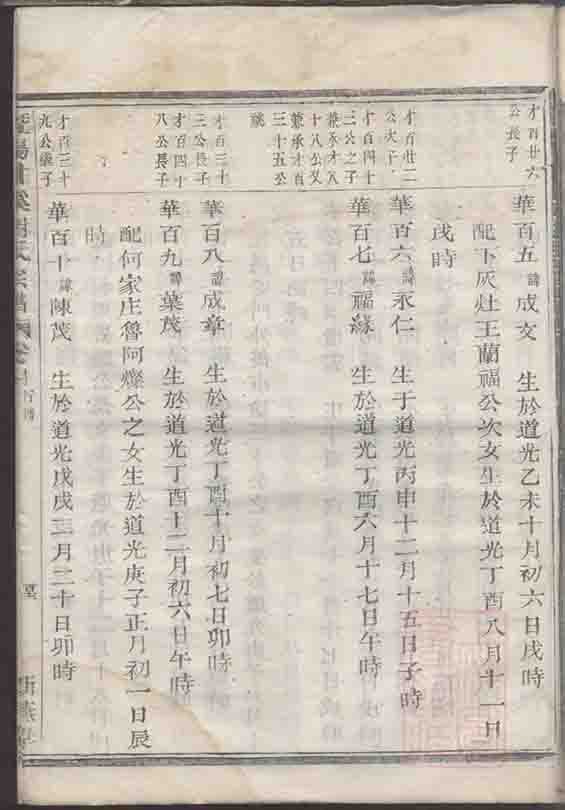 才百廿六
公長子
華百五 諱成文 生於道光乙未十月初六日戌時
配下灰灶王蘭福公次女生於道光丁酉八月十一日
戌時
才百廿二
公次子
華百六 諱永仁 生于道光丙申十二月十五日子時
才百四十
三公之子
兼承才八
十八公又
兼承才百
三十五公
華百七 諱福緣 生於道光丁酉六月十七日午時
才百三十
三公長子
華百八 諱成章 生於道光丁酉十月初七日卯時
才百四十
八公長子
華百九 諱葉茂 生於道光丁酉十二月初六日午時
配何家庄魯阿燦公之女生於道光庚子正月初一日辰
時
才百三十
九公長子
華百十 諱陳茂 生於道光戊戌三月二十日卯時
氏宗譜
行傳